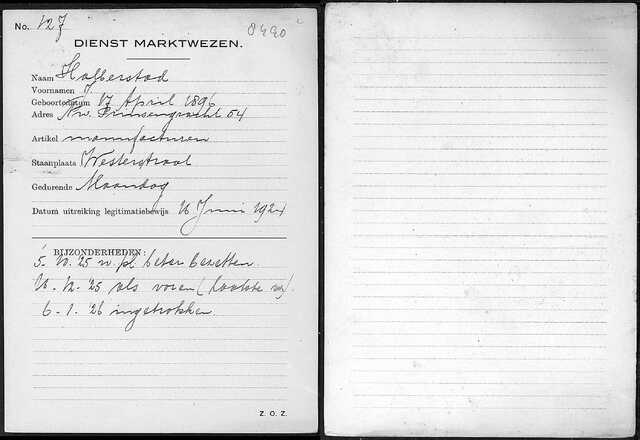 No. 127 8990
DIENST MARKTWEZEN.
Naam Halberstad
Voornamen J.
Geboortedatum 17 April 1896
Adres Nw. Prinsengracht 54
Artikel manufacturen
Staanplaats Westerstraat
Gedurende Maandag
Datum uitreiking legitimatiebewijs 16 Juni 1924
BIJZONDERHEDEN:
5. 10. 25 w. pl. beter bezetten.
16. 12. 25 als voren (laatste
6. 1. '26 ingetrokken
Z. O. Z.